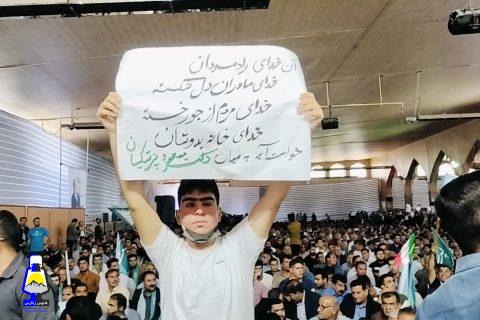 آن خدای رادمردان
خدای مادران دل شکسته
خدای مردم از جور خسته
خدای خانه بدوشان
خواست آید به میدان دکتر مسعود پزشکیان